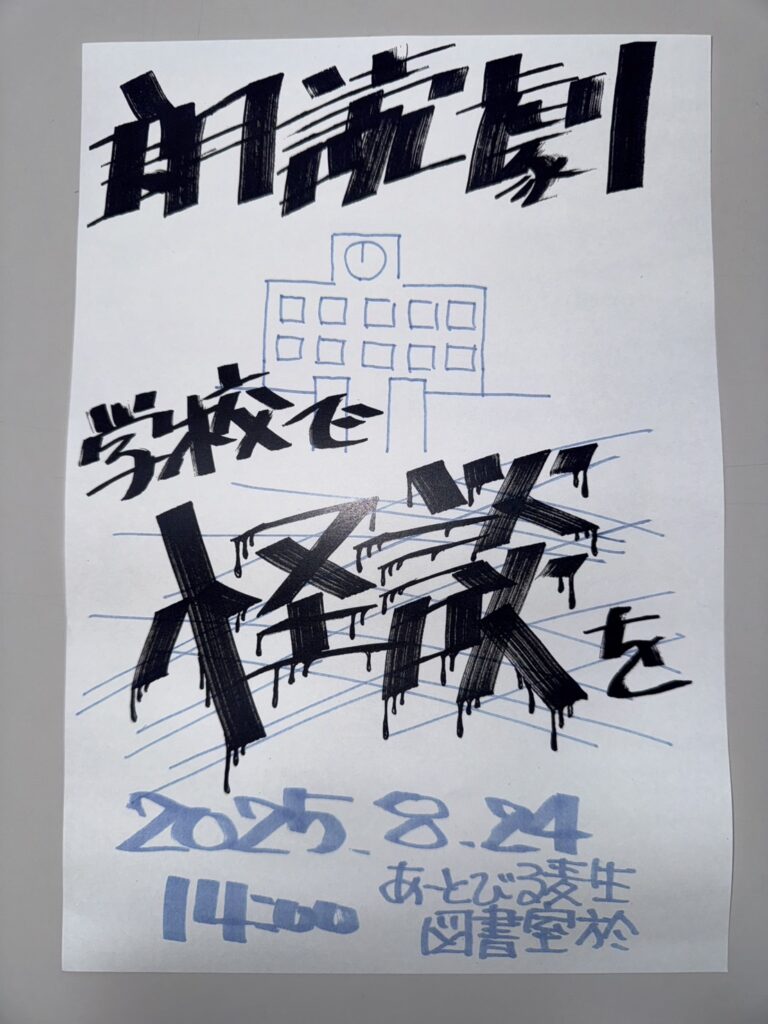 朗読劇
学校で
怪談を
2025.8.24
14:00
あーとびる麦生
図書室於